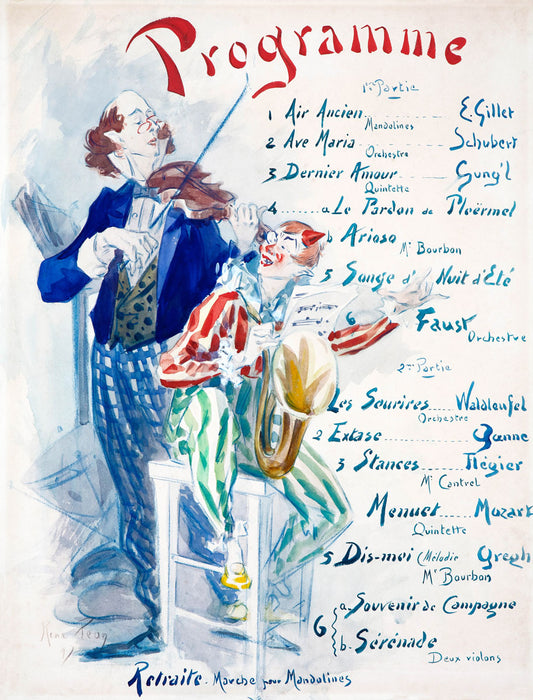 Programme
1re Partie
1 Air Ancien ........ E. Gillet
Mandolines
2 Ave Maria ........ Schubert
Orchestre
3 Dernier Amour ..... Gung'l
Quintette
4 ....... a Le Pardon de Ploërmel
b Arioso
Mr Bourbon
5 Songe d' Nuit d'Eté
6 Faust
Orchestre
2me Partie
Les Sourires ..... Waldteufel
Orchestre
2 Extase ..........
3 Stances ..... Flégier
Mr Cantrel
Menuet ..... Mozart
Quintette
5 Dis-moi (Mélodie Gregh
Mr Bourbon
6 a. Souvenir de Campagne
b. Sérénade
Deux violons
Retraite. Marche pour Mandolines
René